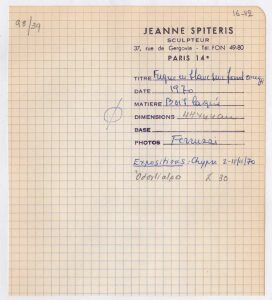 16-42
98/39
JEANNE SPITERIS
SCULPTEUR
37, rue de Gergovie - Tél. FON 49-80
PARIS 14e
TITRE Fugue en blanc sur fond rouge
DATE 1970
MATIERE Bois laqué
DIMENSIONS
BASE
PHOTOS Ferruzzi
Expositions - Chypre 2-11/11/70